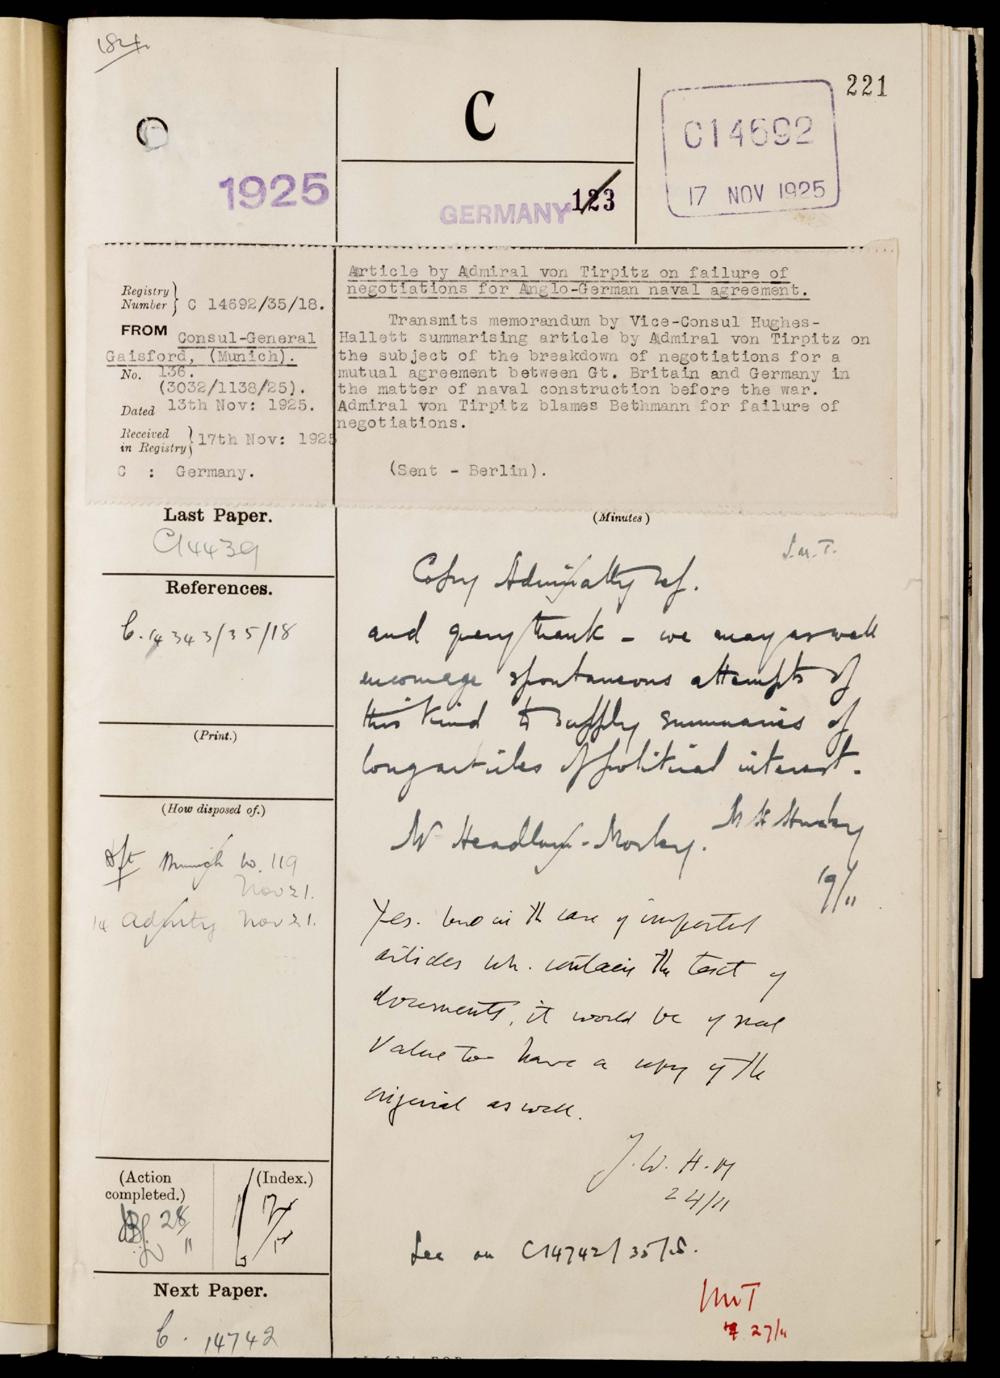 184.
221
C
C14692
17 NOV 1925
1925
GERMANY
123
Registry
Number } C 14692/35/18.
FROM Consul-General
Gaisford, (Munich).
No. 136.
(3032/1138/25).
Dated 13th Nov: 1925.
Received
in Registry } 17th Nov: 1925
C : Germany.
Article by Admiral von Tirpitz on failure of
negotiations for Anglo-German naval agreement.
Transmits memorandum by Vice-Consul Hughes-
Hallett summarising article by Admiral von Tirpitz on
the subject of the breakdown of negotiations for a
mutual agreement between Gt. Britain and Germany in
the matter of naval construction before the war.
Admiral von Tirpitz blames Bethmann for failure of
negotiations.
(Sent - Berlin).
Last Paper.
C14439
References.
C.14343/35/18
(Print.)
(How disposed of.)
Dft Munich No. 119
Nov 21.
Admlty Nov 21.
(Action
completed.)
28
11
(Index.)
Next Paper.
C. 14742
(Minutes)
Copy Admiralty ref.
and query thank - we may as well
encourage spontaneous attempts of
this kind to supply summaries of
long articles of political interest.
Mr Headlam-Morley.
19/11
Yes. but in the case of important
articles wh. contain the text of
documents, it would be of real
value to have a copy of the
original as well.
J.W.H-M
24/11
See on C14742/35/18.
27/11